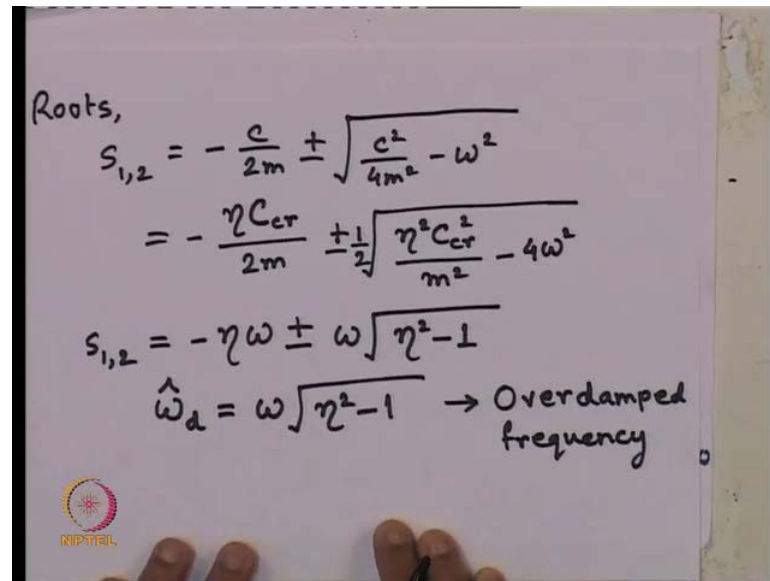 Roots,
S₁,₂ = - c/2m ± √(c²/4m² - ω²)
= - ηC_cr/2m ± 1/2 √(η²C_cr²/m² - 4ω²)
S₁,₂ = - ηω ± ω√(η²-1)
ω̂_d = ω√(η²-1) → Overdamped
frequency
NPTEL